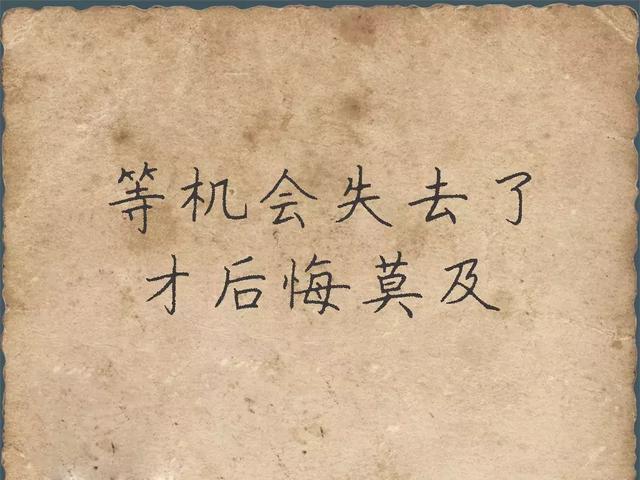 等机会失去了
才后悔莫及